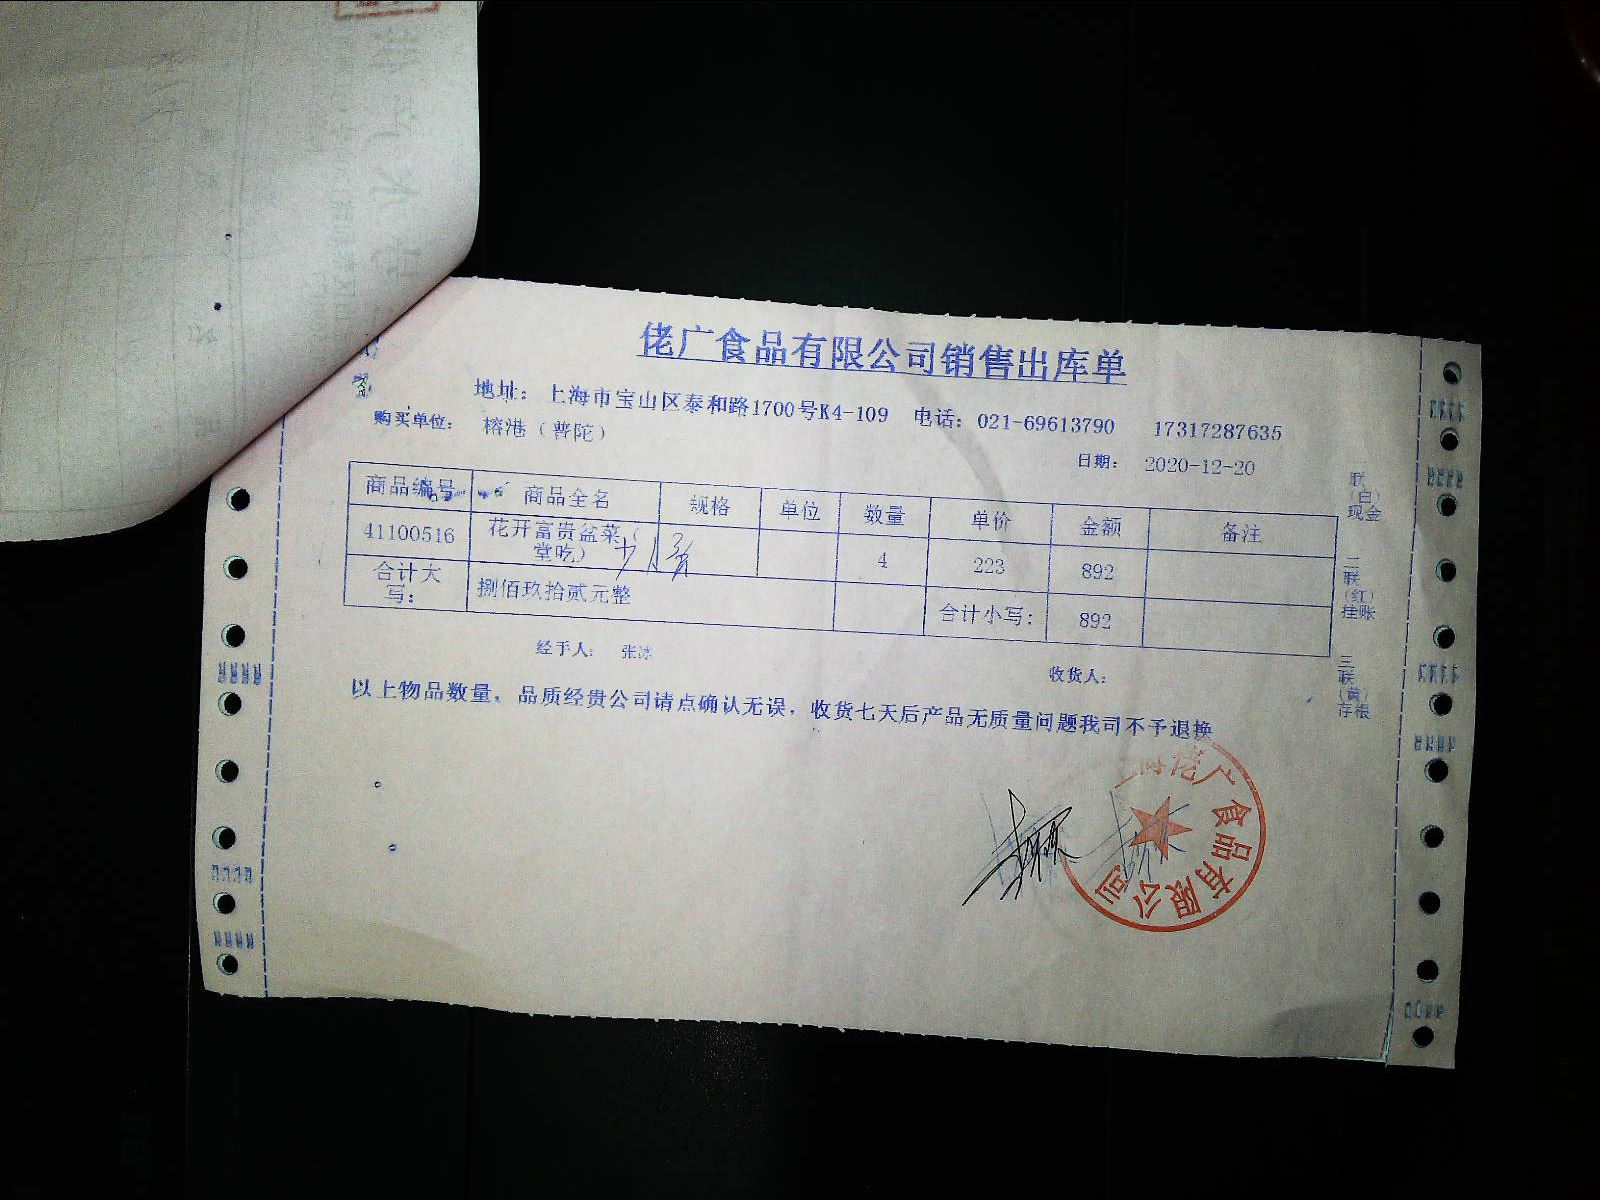 佬广食品有限公司销售出库单
地址： 上海市宝山区泰和路1700号K4-109 电话：021-69613790 17317287635
购买单位： 榕港（普陀）
日期： 2020-12-20
商品编号 商品全名 规格 单位 数量 单价 金额 备注
41100516 花开富贵盆菜（堂吃） 4 223 892
合计大写： 捌佰玖拾贰元整 合计小写： 892
经手人： 张冰 收货人：
以上物品数量，品质经贵公司请点确认无误，收货七天后产品无质量问题我司不予退换
一联（白）现金
二联（红）挂账
三联（黄）存根
上海佬广食品有限公司